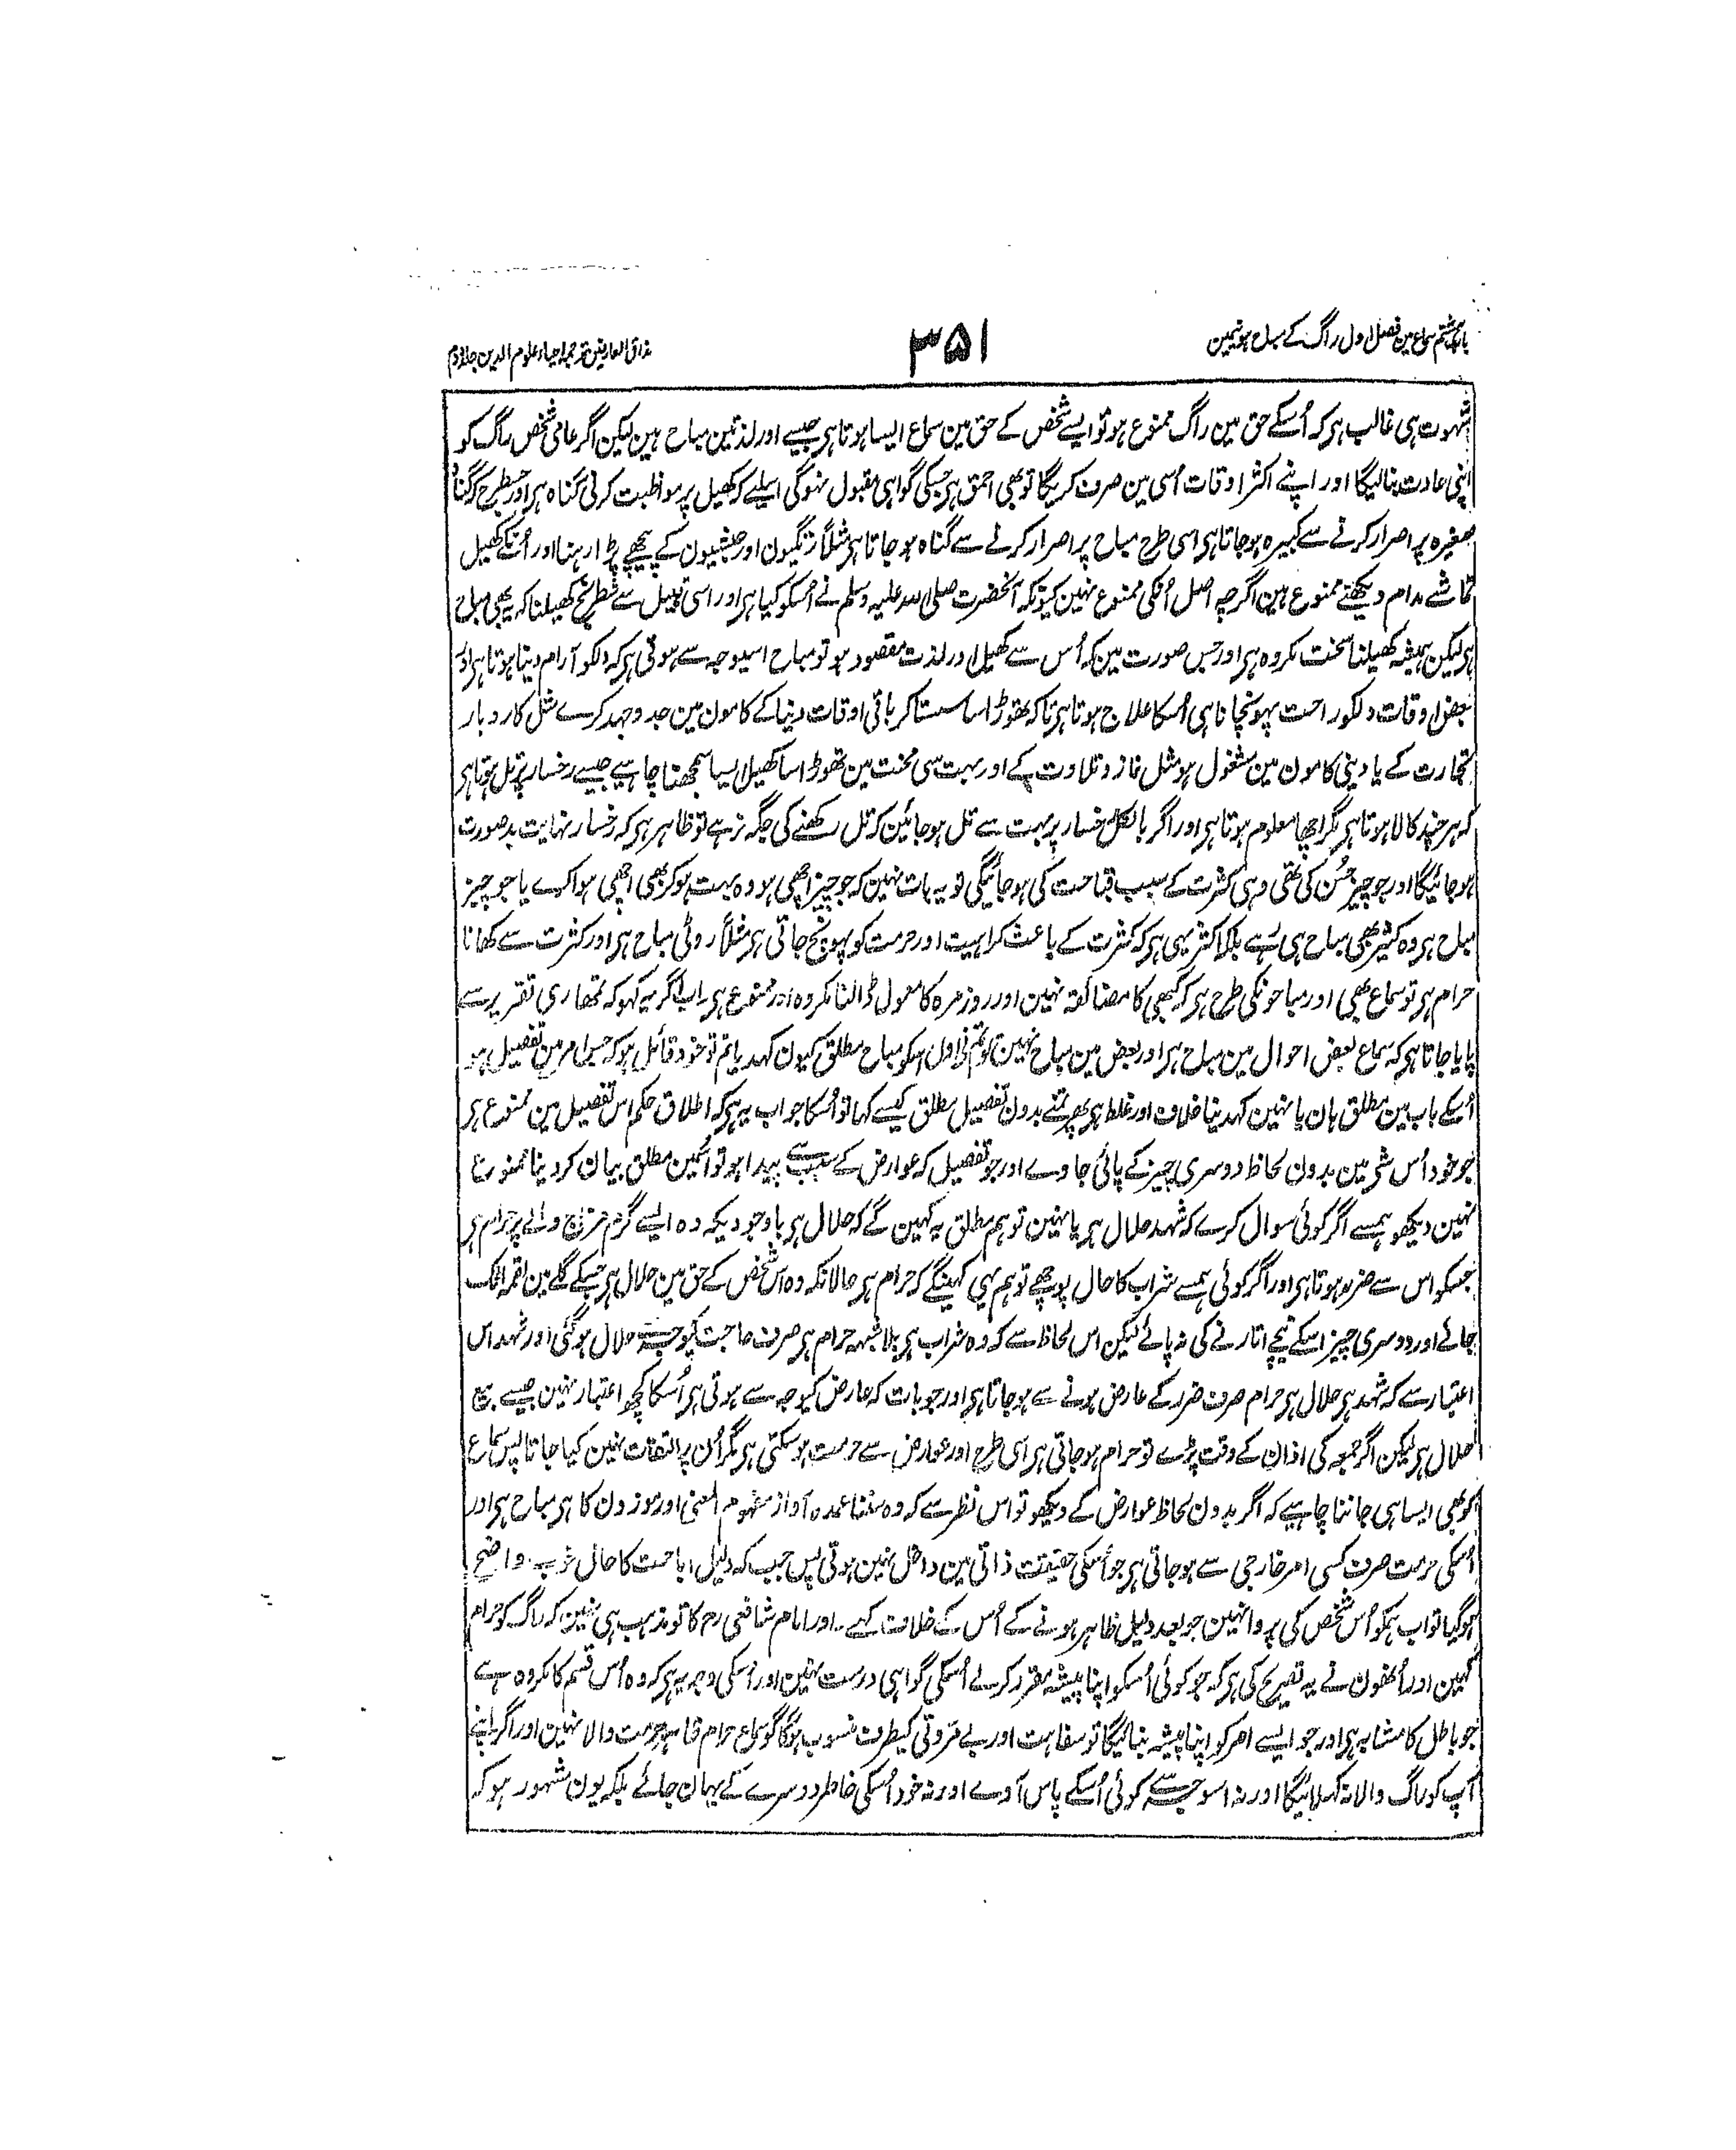 باب ہشتم سماع مین فصل اول راگ کے مباح ہونیمین
۳۵۱
مذاق العارفین ترجمہ احیاء علوم الدین جلد دوم
شہوت ہی غالب ہو کہ اُسکے حق مین راگ ممنوع ہو تو ایسے شخص کے حق مین سماع ایسا ہوتا ہی جیسے اور لذتین مباح ہین لیکن اگر عامی شخص راگ کو
اپنی عادت بنا لیگا اور اپنے اکثر اوقات اُسی مین صرف کریگا تو بھی احمق ہی جسکی گواہی مقبول نہوگی اسلیے کہ کھیل پر مواظبت کرنی گناہ ہی اور جسطرح کہ گناہ
صغیرہ پر اصرار کرنے سے کبیرہ ہوجاتا ہی اسی طرح مباح پر اصرار کرنے سے گناہ ہو جاتا ہی مثلاً زنگیون اور حبشیون کے پیچھے پڑا رہنا اور اُنکے کھیل
تماشے مدام دیکھتے ممنوع ہین اگرچہ اصل اُنکی ممنوع نہین کیونکہ آنحضرت صلی اللہ علیہ وسلم نے اُسکو کیا ہی اور اسی قبیل سے شطرنج کھیلنا کہ یہ بھی مباح
ہی لیکن ہمیشہ کھیلنا سخت مکروہ ہی اور جس صورت مین کہ اُس سے کھیل اور لذت مقصود ہو تو مباح اسیوجہ سے ہوتی ہی کہ دلکو آرام دینا ہوتا ہی اور
بعض اوقات دلکو راحت پہونچانا ہی اُسکا علاج ہوتا ہی تاکہ تھوڑا سا سستا کر باقی اوقات دنیا کے کامون مین جد و جہد کرے مثل کاروبار
تجارت کے یا دینی کامون مین مشغول ہو مثل نماز و تلاوت کے اور بہت سی محنت مین تھوڑا سا کھیل ایسا سمجھنا چاہیے جیسے رخسار پر تل ہوتا ہی
کہ ہر چند کالا ہوتا ہی مگر اچھا معلوم ہوتا ہی اور اگر بالکل رخسار پر بہت سے تل ہوجائین کہ تل رکھنے کی جگہ نرہے تو ظاہر ہی کہ رخسار نہایت بدصورت
ہوجائیگا اور جو چیز حُسن کی تھی وہی کثرت کے سبب قباحت کی ہوجائیگی تو یہ بات نہین کہ جو چیز اچھی ہو وہ بہت ہوکر بھی اچھی ہوا کرے یا جو چیز
مباح ہی وہ کثیر بھی مباح ہی رہے بلکہ اکثر یہی ہی کہ کثرت کے باعث کراہیت اور حرمت کو پہونچ جاتی ہی مثلاً روٹی مباح ہی اور کثرت سے کھانا
حرام ہی تو سماع بھی اور مباحونکی طرح ہی کہ کبھی کا مضائقہ نہین اور روزمرہ کا معمول ڈالنا مکروہ اور ممنوع ہی اب اگر یہ کہو کہ تمھاری تقریر سے
پایا جاتا ہی کہ سماع بعض احوال مین مباح ہی اور بعض مین مباح نہین تو تمنے اول اسکو مباح مطلق کیون کہدیا تم تو خود قائل ہو کہ جس امر مین تفصیل ہو
اُسکے باب مین مطلق ہان یا نہین کہدینا خلاف اور غلط ہی پھر تمنے بدون تفصیل مطلق کیسے کہا تو اُسکا جواب یہ ہی کہ اطلاق حکم اس تفصیل مین ممنوع ہی
جو خود اُس شی مین بدون لحاظ دوسری چیز کے پائی جاوے اور جو تفصیل کہ عوارض کے سبب سے پیدا ہو تو اُسمین مطلق بیان کر دینا ممنوع
نہین دیکھو ہمسے اگر کوئی سوال کرے کہ شہد حلال ہی یا نہین تو ہم مطلق یہ کہین گے کہ حلال ہی باوجودیکہ وہ ایسے گرم مزاج والے پر حرام ہی
جسکو اس سے ضرر ہوتا ہی اور اگر کوئی ہمسے شراب کا حال پوچھے تو ہم یہی کہینگے کہ حرام ہی حالانکہ وہ اُس شخص کے حق مین حلال ہی جسکے گلے مین لقمہ اٹک
جائے اور دوسری چیز اسکے نیچے اتارنے کی نہ پائے لیکن اس لحاظ سے کہ وہ شراب ہی بلا شبہہ حرام ہی صرف حاجت کیوجہ سے حلال ہوگئی اور شہد اس
اعتبار سے کہ شہد ہی حلال ہی حرام صرف ضرر کے عارض ہونے سے ہوجاتا ہی اور جو بات کہ عارض کیوجہ سے ہوتی ہی اُسکا کچھ اعتبار نہین جیسے بیع
حلال ہی لیکن اگر جمعہ کی اذان کے وقت پڑے تو حرام ہوجاتی ہی اسی طرح اور عوارض سے حرمت ہوسکتی ہی مگر اُن پر التفات نہین کیا جاتا پس سماع
کو بھی ایسا ہی جاننا چاہیے کہ اگر بدون لحاظ عوارض کے دیکھو تو اس نظر سے کہ وہ سننا عمدہ آواز مفہوم المعنی اور موزون کا ہی مباح ہی اور
اُسکی حرمت صرف کسی امر خارجی سے ہوجاتی ہی جو اُسکی حقیقت ذاتی مین داخل نہین ہوتی پس جب کہ دلیل اباحت کا حال خوب واضح
ہوگیا تو اب ہمکو اُس شخص کی پروا نہین جو بعد دلیل ظاہر ہونے کے اُس کے خلاف کہے۔ اور امام شافعی رح کا تو مذہب ہی نہین کہ راگ کو حرام
کہین اور اُنھون نے یہ تصریح کی ہی کہ جو کوئی اُسکو اپنا پیشہ مقرر کرلے اُسکی گواہی درست نہین اور اُسکی وجہ یہ ہی کہ وہ اُس قسم کا مکروہ ہے
جو باطل کا مشابہ ہی اور جو ایسے امر کو اپنا پیشہ بنا لیگا تو سفاہت اور بے مروتی کیطرف منسوب ہوگا گو سماع حرام حرمت والا نہین اور اگر اپنے
آپ کو راگ والا نہ کہلائیگا اور نہ اسوجہ سے کوئی اُسکے پاس آوے اور نہ خود اُسکی خاطر دوسرے کے یہان جائے بلکہ یون مشہور ہو کہ